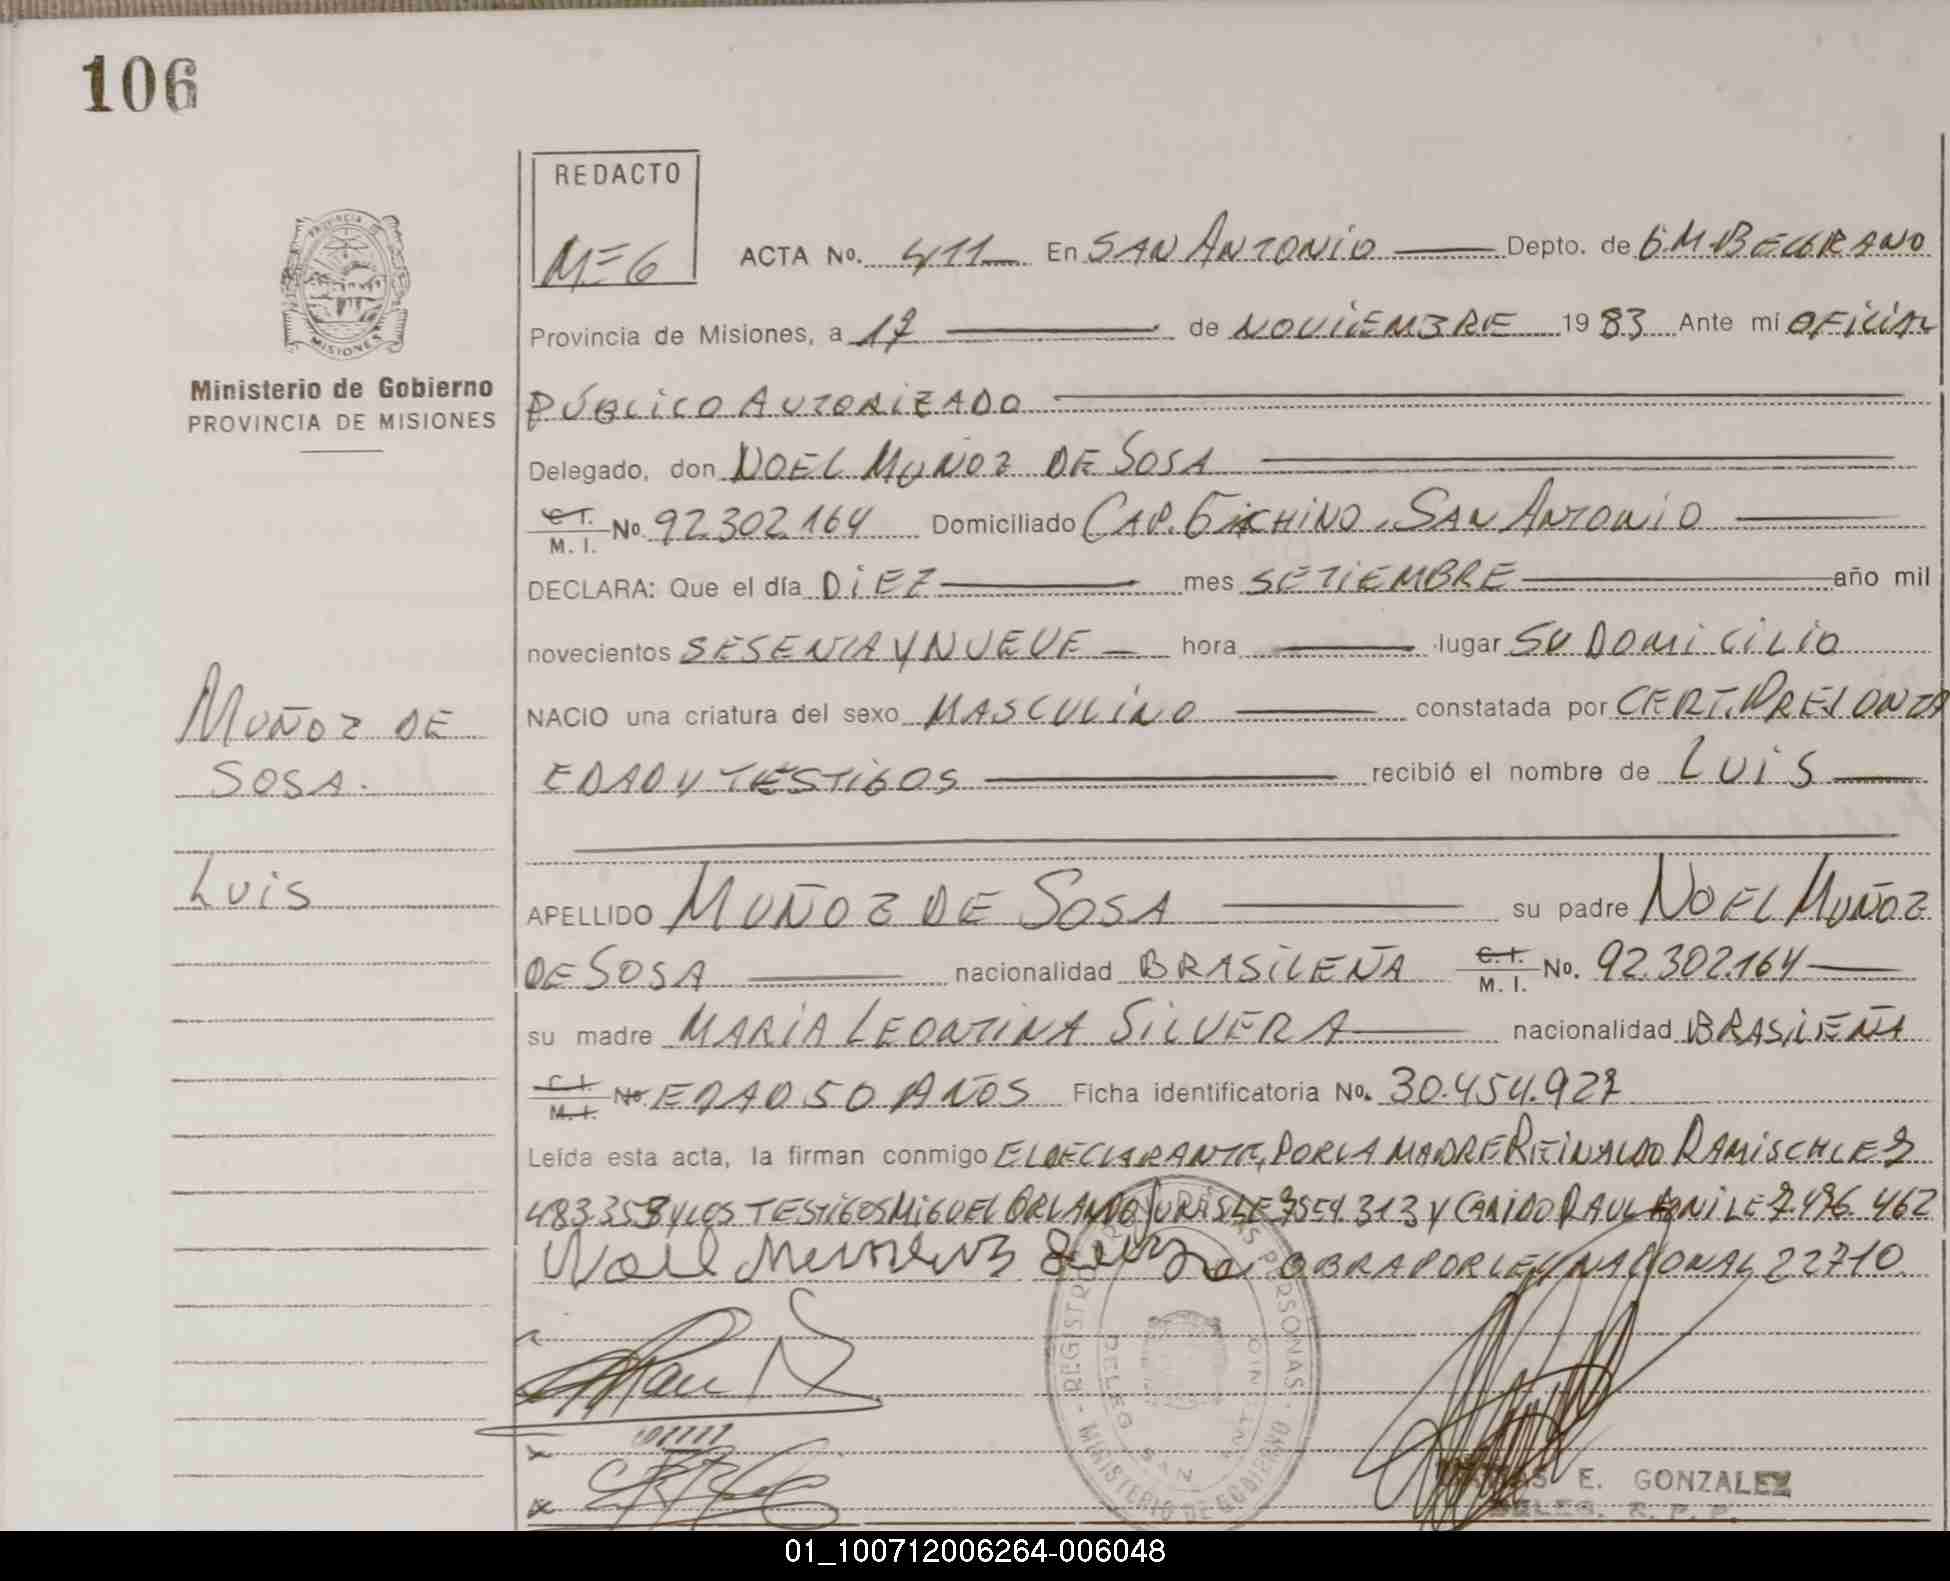 106
REDACTO
M=G
ACTA No. 411 En SAN ANTONIO Depto. de G.M.BELGRANO
Provincia de Misiones, a 17 de NOVIEMBRE 1983 Ante mí OFICIAL
PROVINCIA DE MISIONES
Ministerio de Gobierno
PROVINCIA DE MISIONES
PÚBLICO AUTORIZADO
Delegado, don NOEL MUÑOZ DE SOSA
C.I. M. I. No. 92.302.164 Domiciliado CAP. SAN ANTONIO
DECLARA: Que el día DIEZ mes SETIEMBRE año mil
novecientos SESENTA Y NUEVE hora lugar SU DOMICILIO
NACIO una criatura del sexo MASCULINO constatada por CERT. PRESONTA
EDAD Y TESTIGOS recibió el nombre de LUIS
MUÑOZ DE
SOSA.
LUIS
APELLIDO MUÑOZ DE SOSA su padre NOEL MUÑOZ
DE SOSA nacionalidad BRASILEÑA C.I. M. I. No. 92.302.164
su madre MARIA LEONTINA SILVERA nacionalidad BRASILEÑA
C.I. M.I. No. EDAD 50 AÑOS Ficha identificatoria No. 30.454.927
Leída esta acta, la firman conmigo EL DECLARANTE, POR LA MADRE REINALDO RAMISCH LE 7
483.358 Y LOS TESTIGOS MIGUEL ORLANDO LE 7.554.313 Y RAUL LE 7.496.462
OBRA POR LEY NACIONAL 22710
REGISTRO PERSONAS - MINISTERIO DE GOBIERNO
DELEG. SAN ANTONIO
E. GONZALEZ
DELEG. R. P. P.
01_100712006264-006048